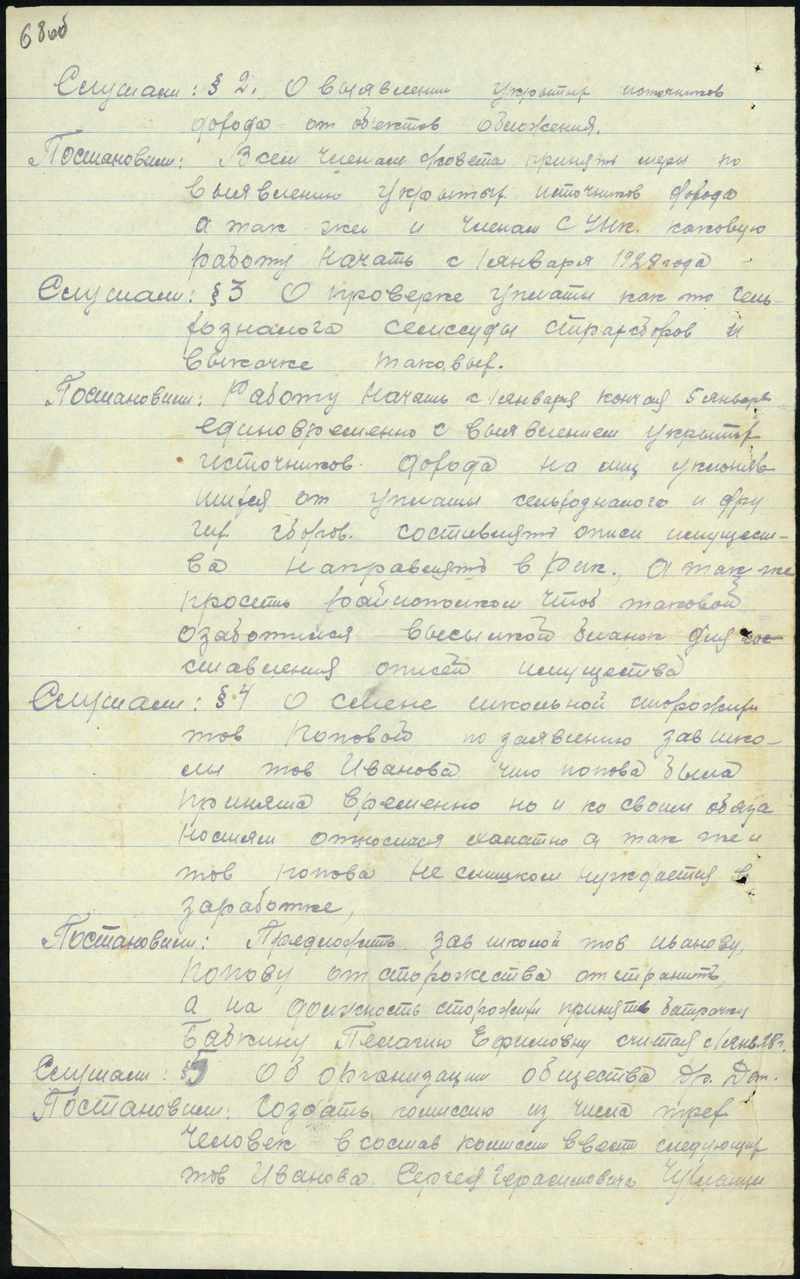 68об
Слушали: § 2. О выявлении укрытых источников
дохода от об'ектов обложения.
Постановили: Всем членам совета принять меры по
выявлению укрытых источников дохода
а так же и членам СЧК. каковую
работу начать с 1 января 1928 года
Слушали: § 3 О проверке уплаты как то сель-
хозналога семссуды страхсборов и
выкачке таковых.
Постановили: Работу начать с 1 января кончая 5 января
единовременно с выявлением укрытых
источников дохода на лиц уклоняв
шихся от уплаты сельхозналога и дру
гих сборов. составлять описи имущест-
ва направлять в Рик., а так же
просить райисполком чтоб таковой
озаботился высылкой бланок для сос
ставления описей имущества
Слушали: § 4 О смене школьной сторожихи
тов Поповой по заявлению зав шко-
лы тов Иванова что попова была
принята временно но и ко своим обяза
ностям относится халатно а так же и
тов попова не слишком нуждается в
заработке,
Постановили: Предложить зав школой тов иванову,
попову от сторожества отстранить,
а на должность сторожихи принять батрачку
Бабкину Пелагию Ефимовну считая с 1 янв. 28 г.
Слушали: § 5 Об организации общества Др. Дет.
Постановили: Создать комиссию из числа трех
человек в состав комиссии ввести следующих
тов Иванова Сергея Герасимовича